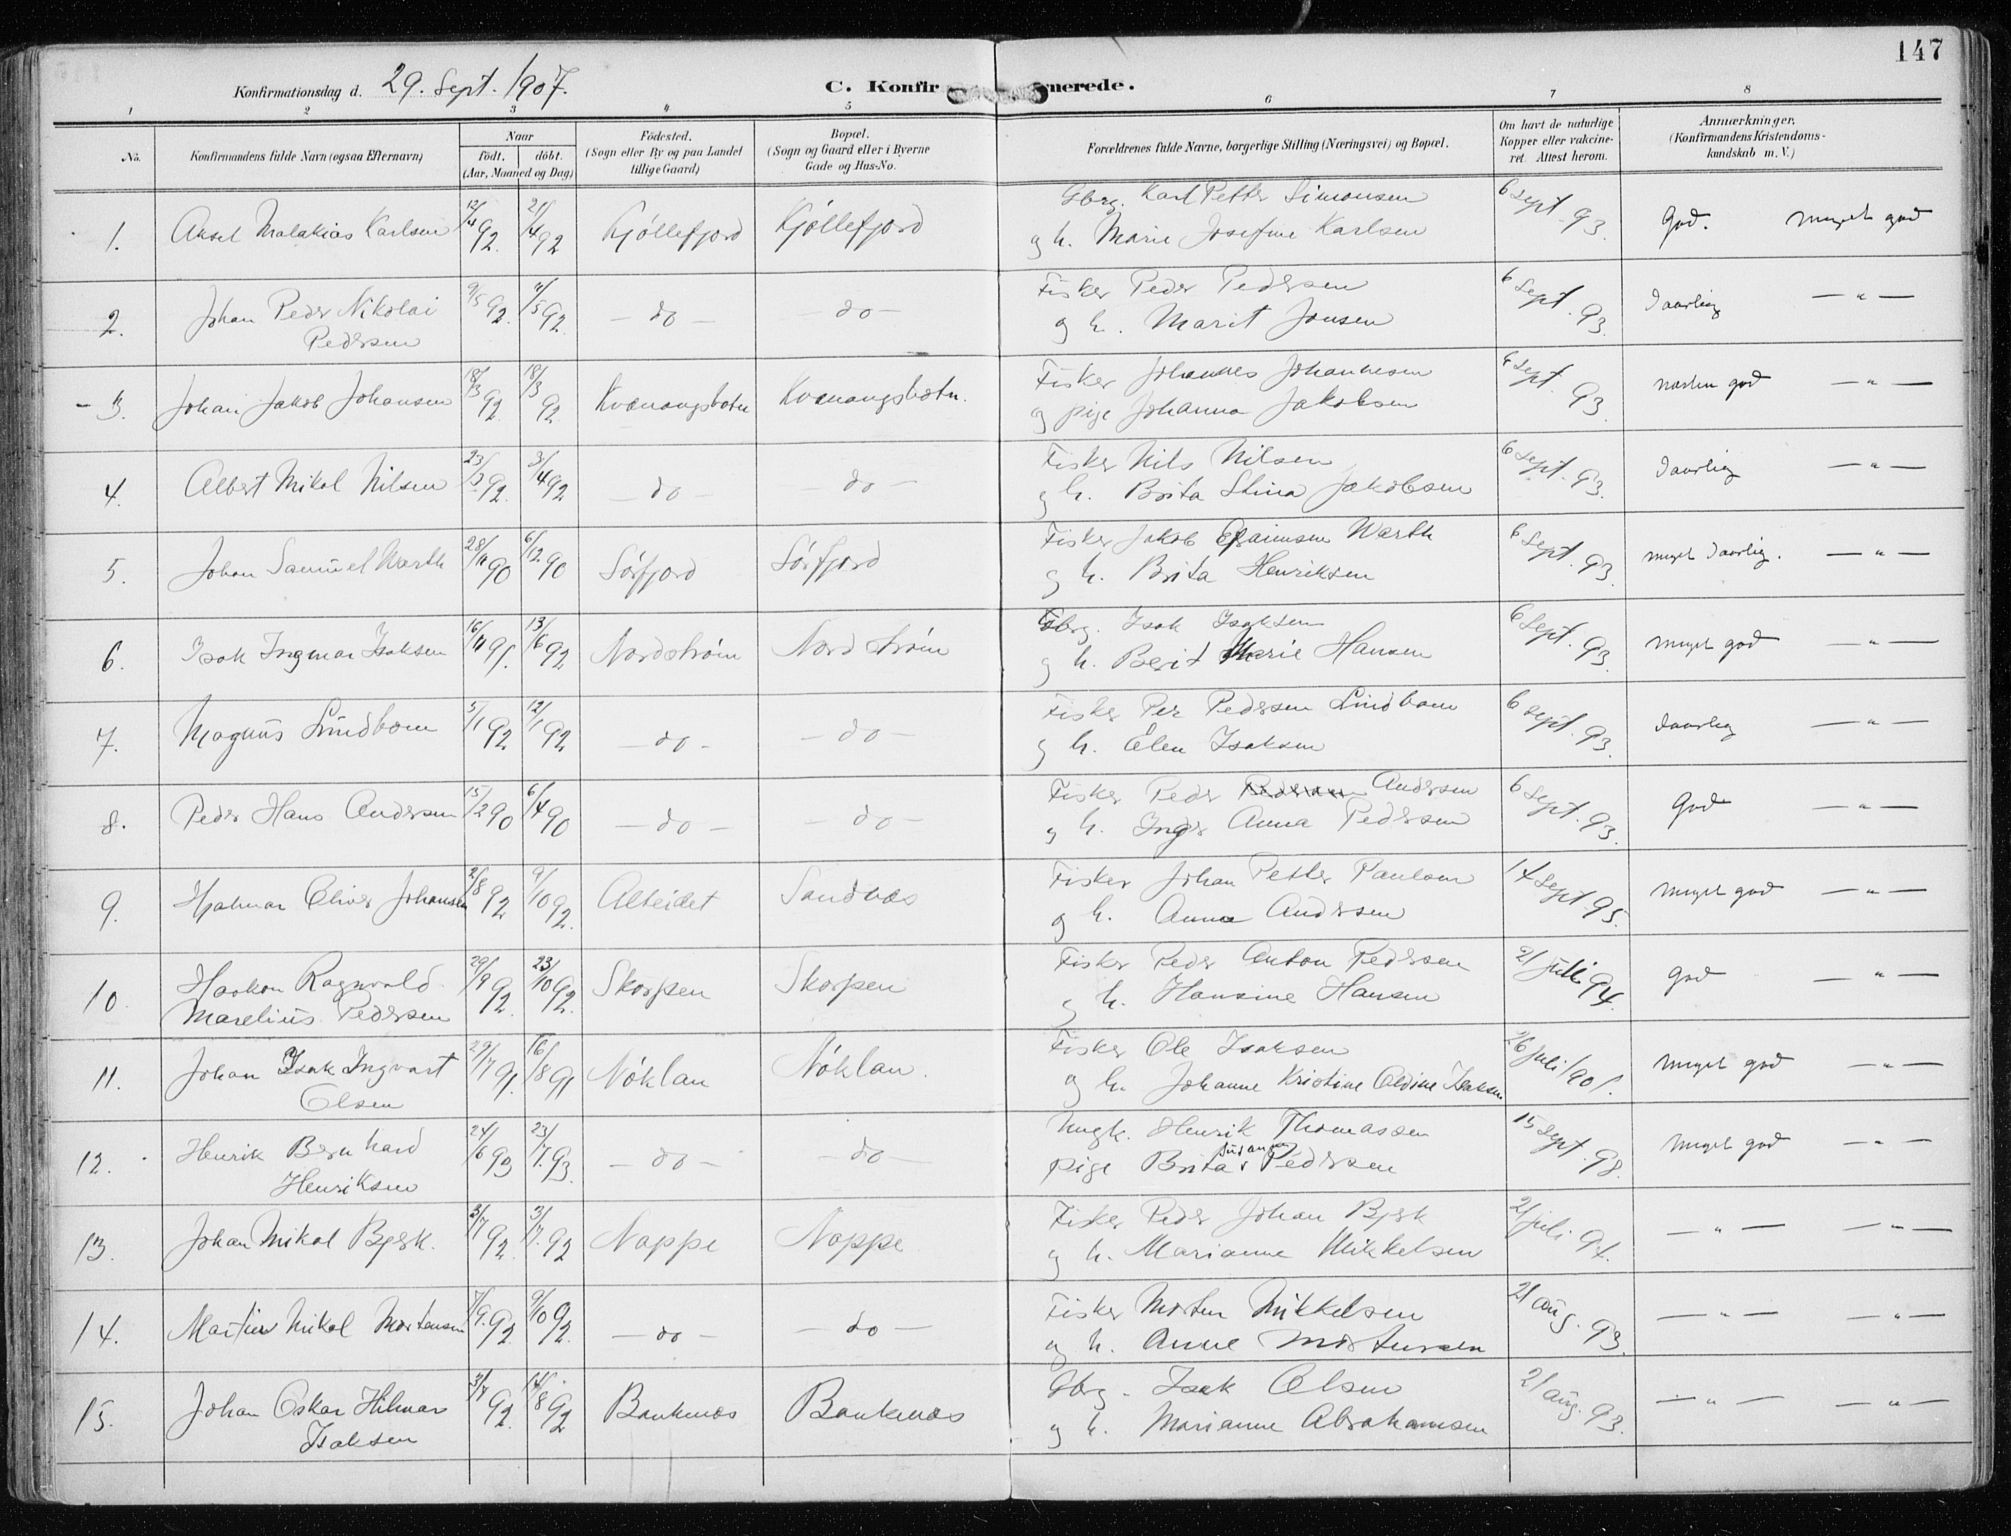 147
Konfirmationsdag d. 29. Sept. 1907.
C. Konfir merede.
1 2 3 4 5 6 7 8
No.
Konfirmandens fulde Navn (ogsaa Efternavn)
Naar
født. døbt.
(Aar, Maaned og Dag)
Fødested.
(Sogn eller By og paa Landet
tillige Gaard)
Bopæl.
(Sogn og Gaard eller i Byerne
Gade og Hus-No.
Forældrenes fulde Navne, borgerlige Stilling (Næringsvei) og Bopæl.
Om havt de naturlige
Kopper eller vakcine-
ret. Attest herom.
Anmærkninger.
(Konfirmandens Kristendoms-
kundskab m. V.)
1. Aksel Malakias Karlsen 12/4 92. 24/4 92 Kjøllefjord Kjøllefjord Gbrg. Karl Petter Simonsen
og h. Marie Josefine Karlsen 6 Sept. 93. God. Meget god
2. Johan Peder Nikolai
Pedersen 9/5 92. /5 92. - do - - do - Fisker Peder Pedersen
og h. Marit Jonsen 6 Sept. 93. daarlig — " —
3. Johan Jakob Johansen 18/3 92. 18/3 92 Kvænangsbotn Kvænangsbotn. Fisker Johannes Johannesen
og pige Johanna Jakobsen 6 Sept. 93 næsten god — " —
4. Albert Mikal Nilsen 23/3 92. 3/4 92 - do - - do - Fisker Nils Nilsen
og h. Brita Stina Jakobsen 6 Sept. 93. daarlig — " —
5. Johan Samuel Warth 28/11 90 6/12 90 Sørfjord Sørfjord Fisker Jakob Efraimsen Warth
og h. Brita Henriksen 6 Sept. 93. meget daarlig. — " —
6. Isak Ingmar Isaksen 16/11 91. 13/6 92 Nordstrøm Nordstrøm Gbrg. Isak Isaksen
og h. Berit Marie Hansen 6 Sept. 93. Meget god — " —
7. Magnus Lindbom 5/1 92 12/1 92 - do - - do - Fisker Per Pedersen Lindbom
og h. Elen Isaksen 6 Sept. 93. daarlig — " —
8. Peder Hans Andersen 15/2 90 6/4 90 - do - - do - Fisker Peder Pedersen Andersen
og h. Inger Anna Pedersen 6 Sept. 93. God — " —
9. Hjalmar Oliver Johansen 2/8 92 9/10 92. Alteidet Sandnes Fisker Johan Petter Paulsen
og h. Anna Andersen 14 Sept 95. Meget god — " —
10. Haakon Ragnvald
Marelius Pedersen 29/9 92. 23/10 92. Skorpen Skorpen Fisker Peder Anton Pedersen
og h. Hansine Hansen 21 juli 94. God — " —
11. Johan Isak Ingvart
Olsen 29/7 91. 16/8 91 Nøklan Nøklan. Fisker Ole Isaksen
og h. Johanne Kristine Aldine Isaksen 26 juli 1901. Meget god — " —
12. Henrik Bernhard
Henriksen 24/6 93 23/7. 93. - do - - do - Ungk. Henrik Thomassen
pige Brita Susanna Pedersen 15 Sept. 98. Meget god — " —
13. Johan Mikal Bjerk. 3/7 92. 3/7. 92 Noppe Noppe Fisker Peder Johan Bjerk
og h. Marianne Mikkelsen 21 juli 94. — " — — " —
14. Martin Mikal Mortensen 7/9. 92. 9/10 92. - do - - do - Fisker Morten Mikkelsen
og h. Anne Mortensen 21 aug. 93. — " — — " —
15. Johan Oskar Hilmar
Isaksen 3/7 92. 14/8 92 Bankenæs Bankenæs Gbrg. Isak Olsen
og h. Marianne Abrahamsen 21 aug. 93. — " — — " —